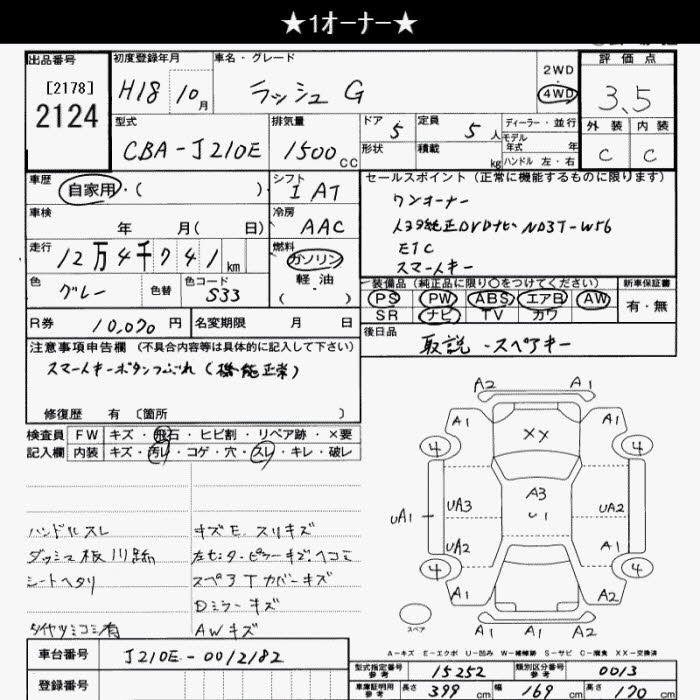 ★1オーナー★
出品番号 初度登録年月 車名・グレード 2WD 評価点
[2178] H18 10月 ラッシュ G 4WD 3.5
2124 型式 排気量 ドア 5 定員 5人 ディーラー・並行 外装 内装
CBA-J210E 1500cc 形状 積載 kg モデル年式 年 C C
ハンドル 左・右
車歴 シフト セールスポイント (正常に機能するものに限ります)
自家用・( ) I AT ワンオーナー
車検 冷房 トヨタ純正DVDナビ ND3T-W56
年 月( 日) AAC ETC
走行 燃料 スマートキー
12万4千741km ガソリン
色 色替 色コード 軽・油 装備品 (純正品に限り○をつけてください) 新車保証書
グレー S33 ( ) PS PW ABS エアB AW 有・無
SR ナビ TV カワ
R券 10,070円 名変期限 月 日 後日品
取説・スペアキー
注意事項申告欄 (不具合内容等は具体的に記入して下さい)
スマートキーボタンつぶれ(機能正常)
修復歴 有 〔箇所 〕
検査員 FW キズ・飛石・ヒビ割・リペア跡・×要
記入欄 内装 キズ・汚レ・コゲ・穴・スレ・キレ・破レ
ハンドルスレ キズE.スリキズ
ダッシュ板川跡
シートヘタリ スペアTカバーキズ
Dミラーキズ
タイヤツミコミ有 AWキズ
A2 A1
A1 XX A1
4 4
A3
UA1 UA3 U1 UA2
UA2 A1
4 4
A2 A2
スペア A1 A1
A-キズ E-エクボ U-凹み W-補修跡 S-サビ C-腐食 XX-交換済
車台番号 J210E-0012182
型式指定番号 参考 15252 類別区分番号 参考 0013
登録番号
車庫証明用 参考 長さ 399cm 幅 169cm 高さ 170cm